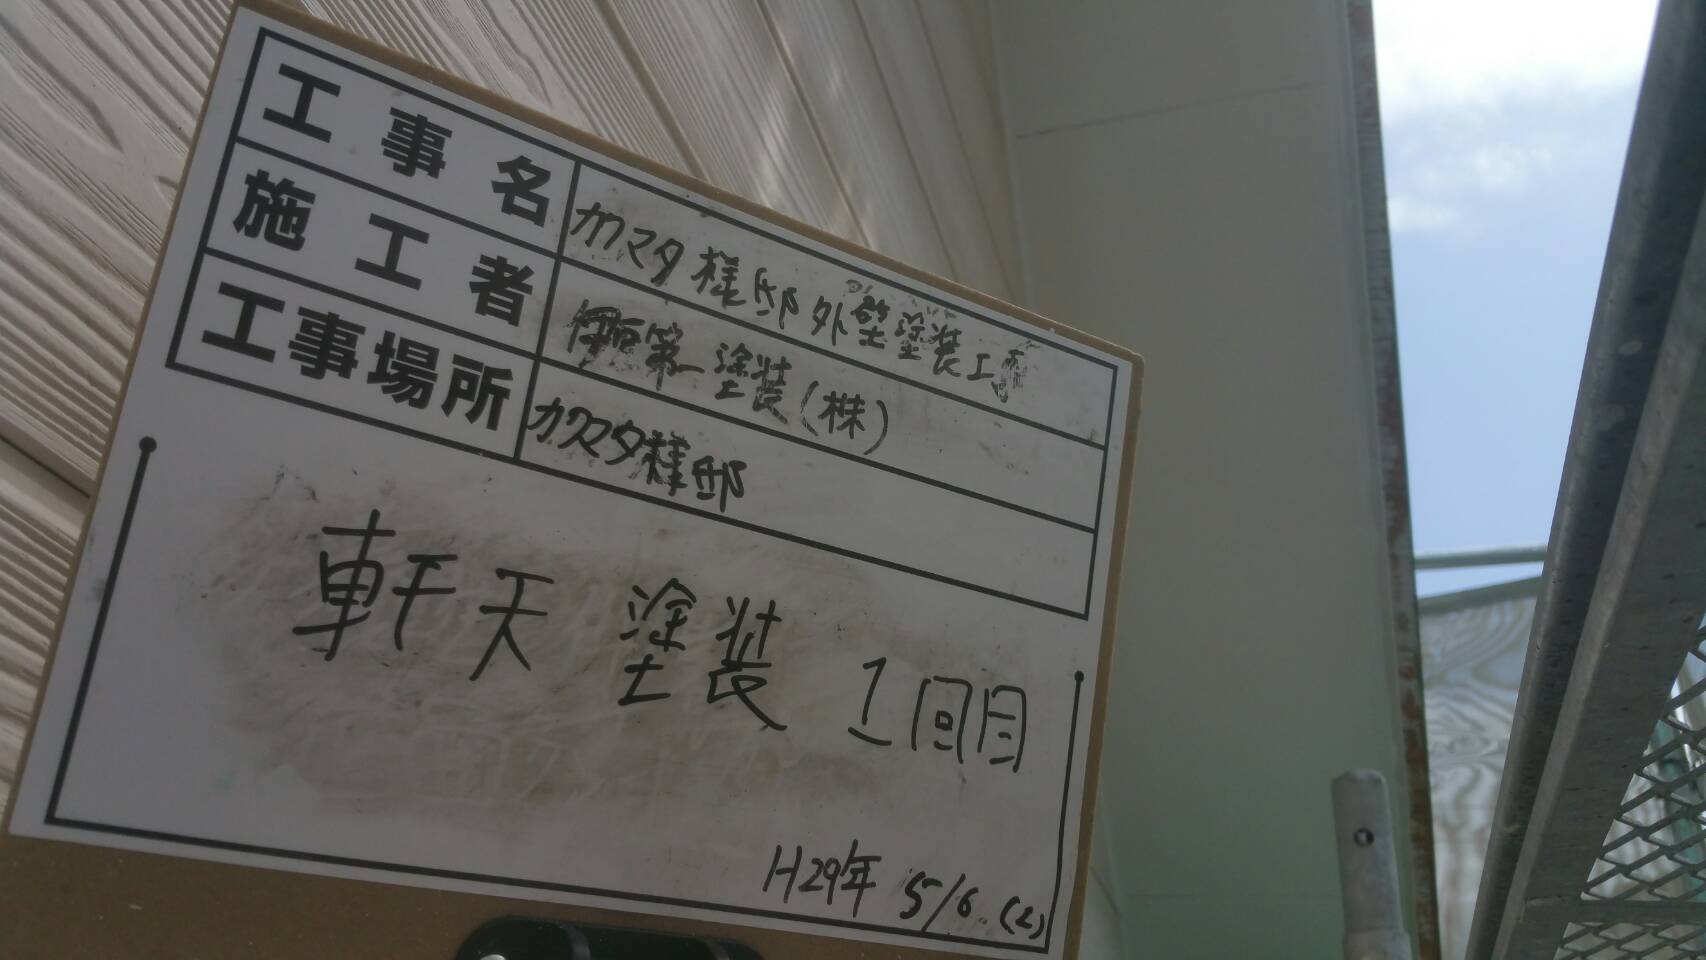 工事名 カワマタ様邸外壁塗装工事
施工者 第一塗装(株)
工事場所 カワマタ様邸
軒天 塗装 1回目
H29年 5/6 (2)